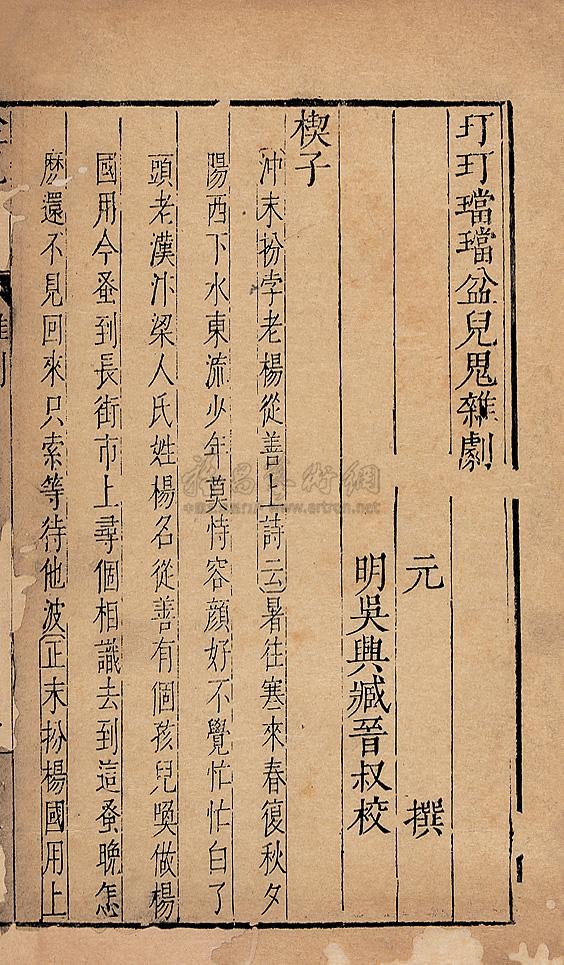 玎玎璫璫盆兒鬼雜劇
元 撰
明吳興臧晉叔校
楔子
沖末扮孛老楊從善上詩云暑往寒來春復秋夕
陽西下水東流少年莫恃容顏好不覺忙忙白了
頭老漢汴梁人氏姓楊名從善有個孩兒喚做楊
國用今蚤到長街市上尋個相識去到這蚤晚怎
麽還不見回來只索等待他波正末扮楊國用上
雜劇
www.artron.net